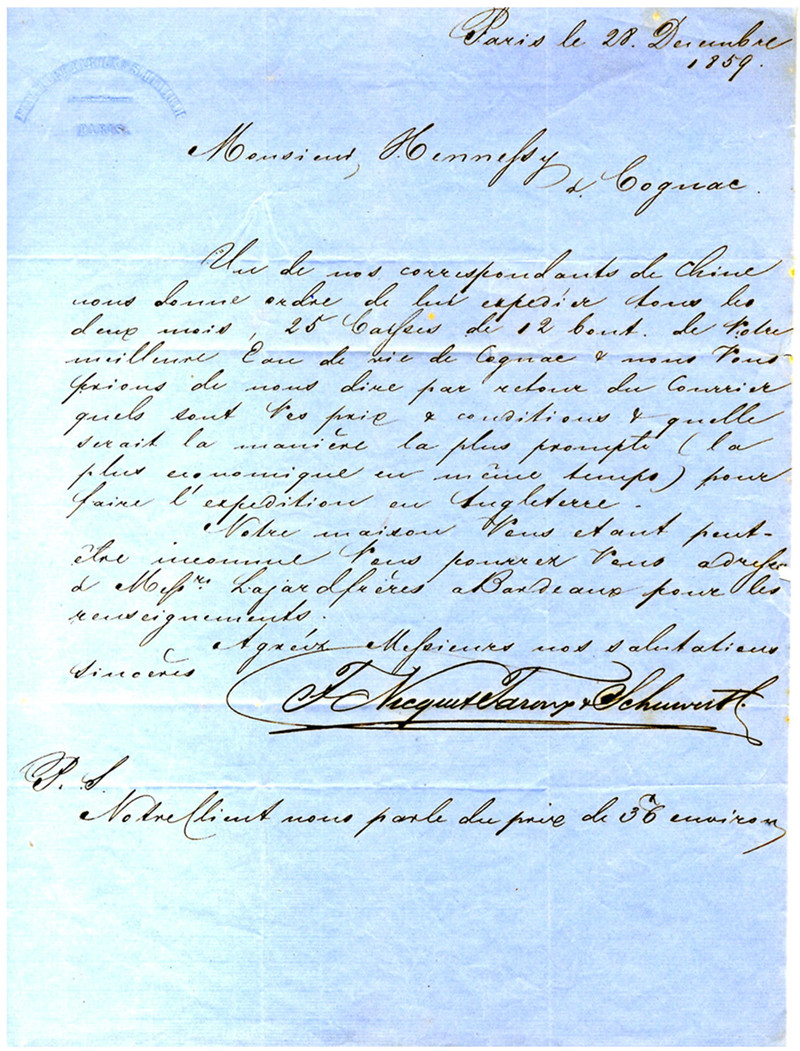 Paris le 28. Decembre
1859.
Monsieur Hennessy
à Cognac.
Un de nos correspondants de Chine
nous donne ordre de lui expédier tous les
deux mois, 25 Caisses de 12 bout. de Votre
meilleure Eau de vie de Cognac & nous Vous
prions de nous dire par retour du Courrier
quels sont Vos prix & conditions & quelle
serait la manière la plus prompte (la
plus economique en même temps) pour
faire l'expedition en Angleterre.
Notre maison Vous etant peut-
être inconnue Vous pourrez Vous adresser
à Messrs. Lajard frères a Bordeaux pour les
renseignements.
Agréez Messieurs nos salutations
sincères
F.
P. S.
Notre Client nous parle du prix de environ